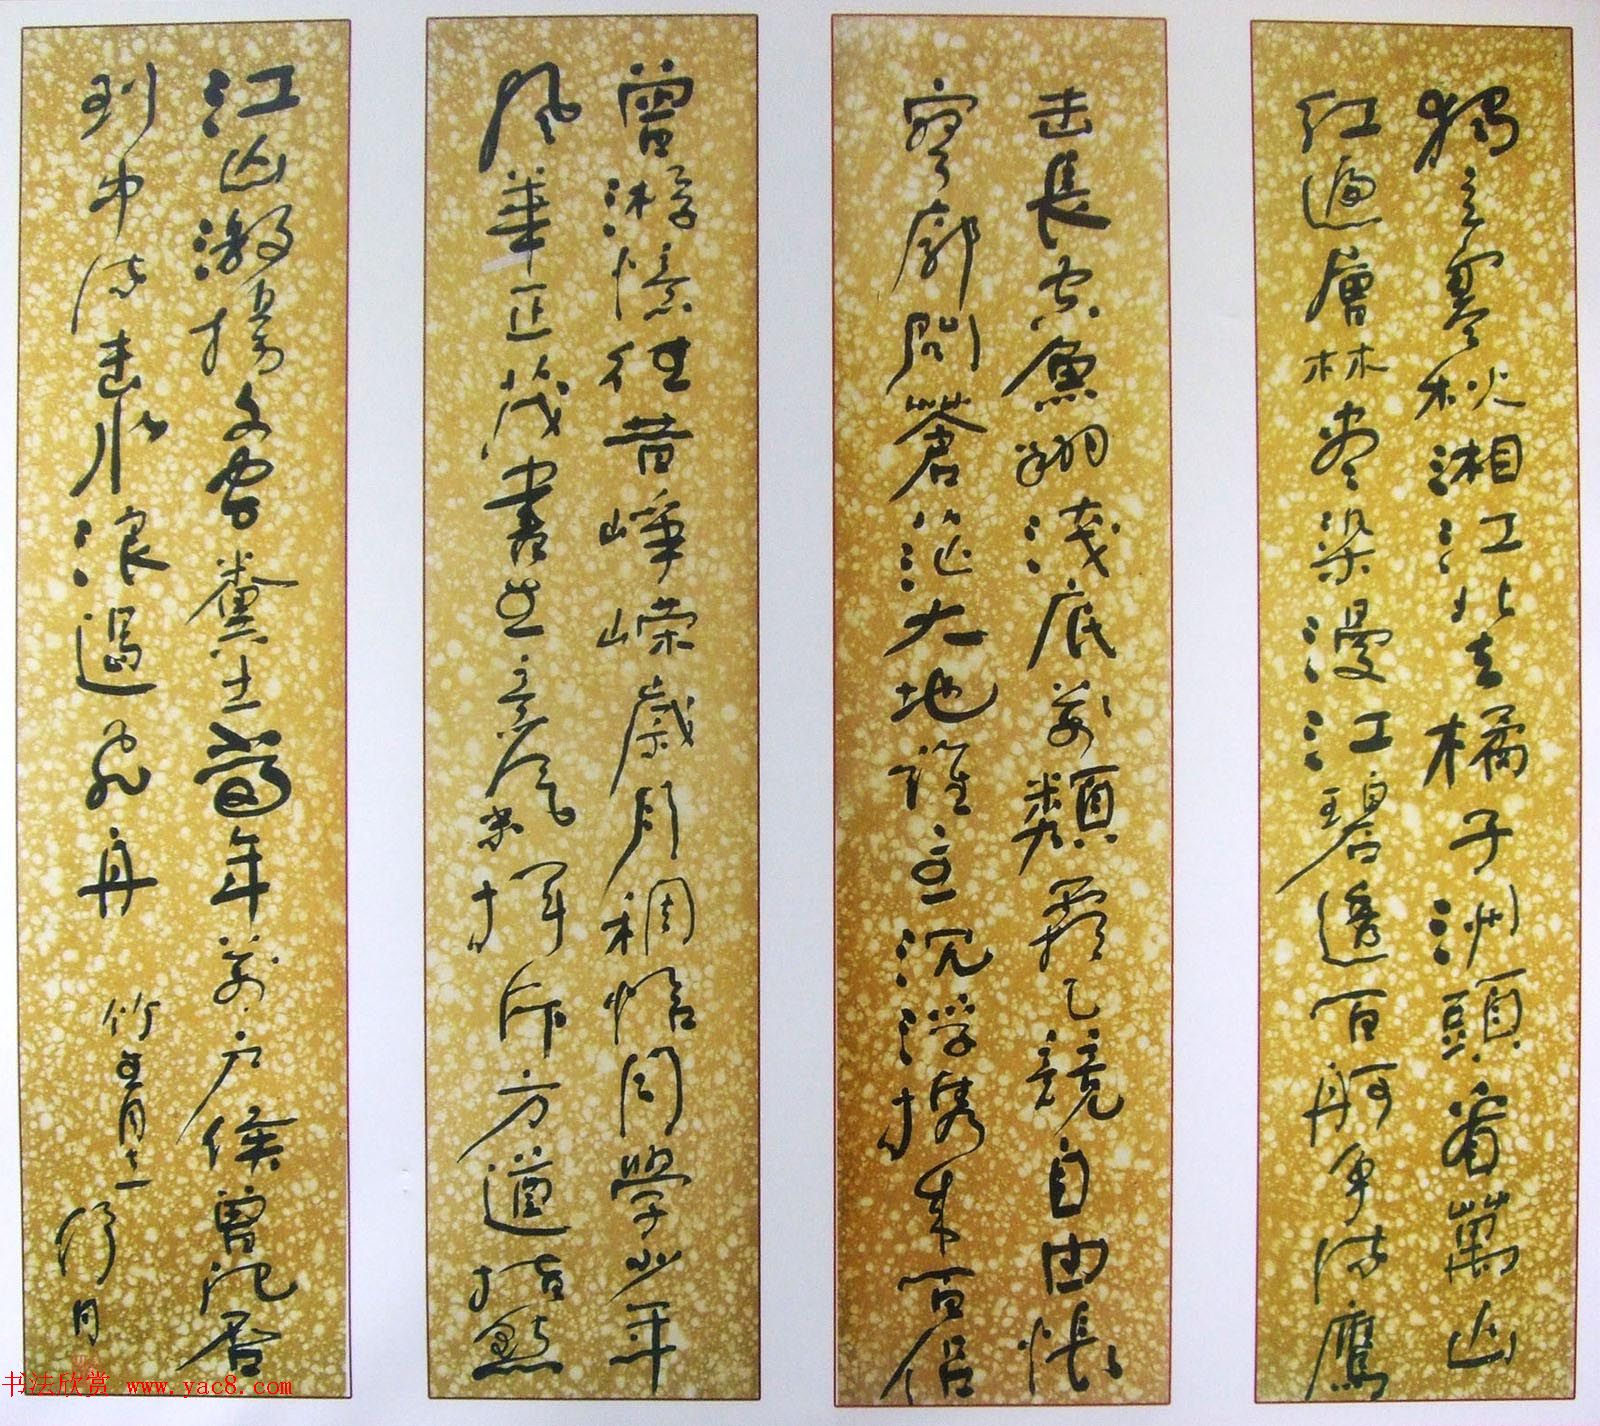 獨立寒秋湘江北去橘子洲頭看萬山
紅遍層林盡染漫江碧透百舸爭流鷹
击長空魚翔淺底万類霜天競自由悵
寥廓問蒼茫大地誰主沉浮携來百侣
曾游憶往昔崢嶸歲月稠恰同學少年
風華正茂書生意氣揮斥方遒指點
江山激揚文字糞土當年万户侯曾記否
到中流击水浪遏飛舟
书法欣赏 www.yac8.com